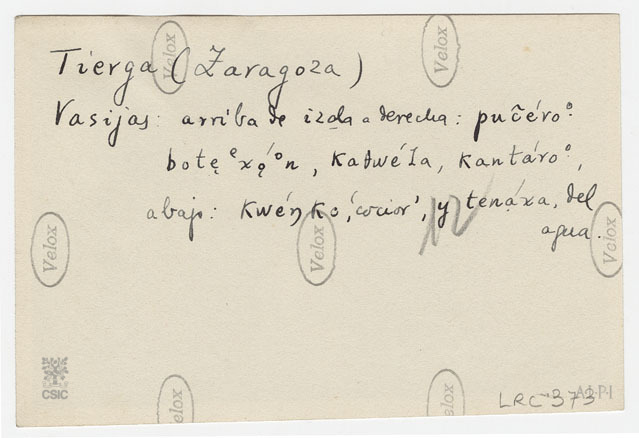 Tierga (Zaragoza)
Vasijas: arriba de izda a derecha: pučéroº
botęᵉxǫ́ºn, kaƀwéla, kantároº,
abajo: kwéŋko, 'cocior', y tenáxa, del
agua.
12
Velox
Velox
Velox
Velox
Velox
elox
elox
CSIC
A·L·P·I
LRC-373